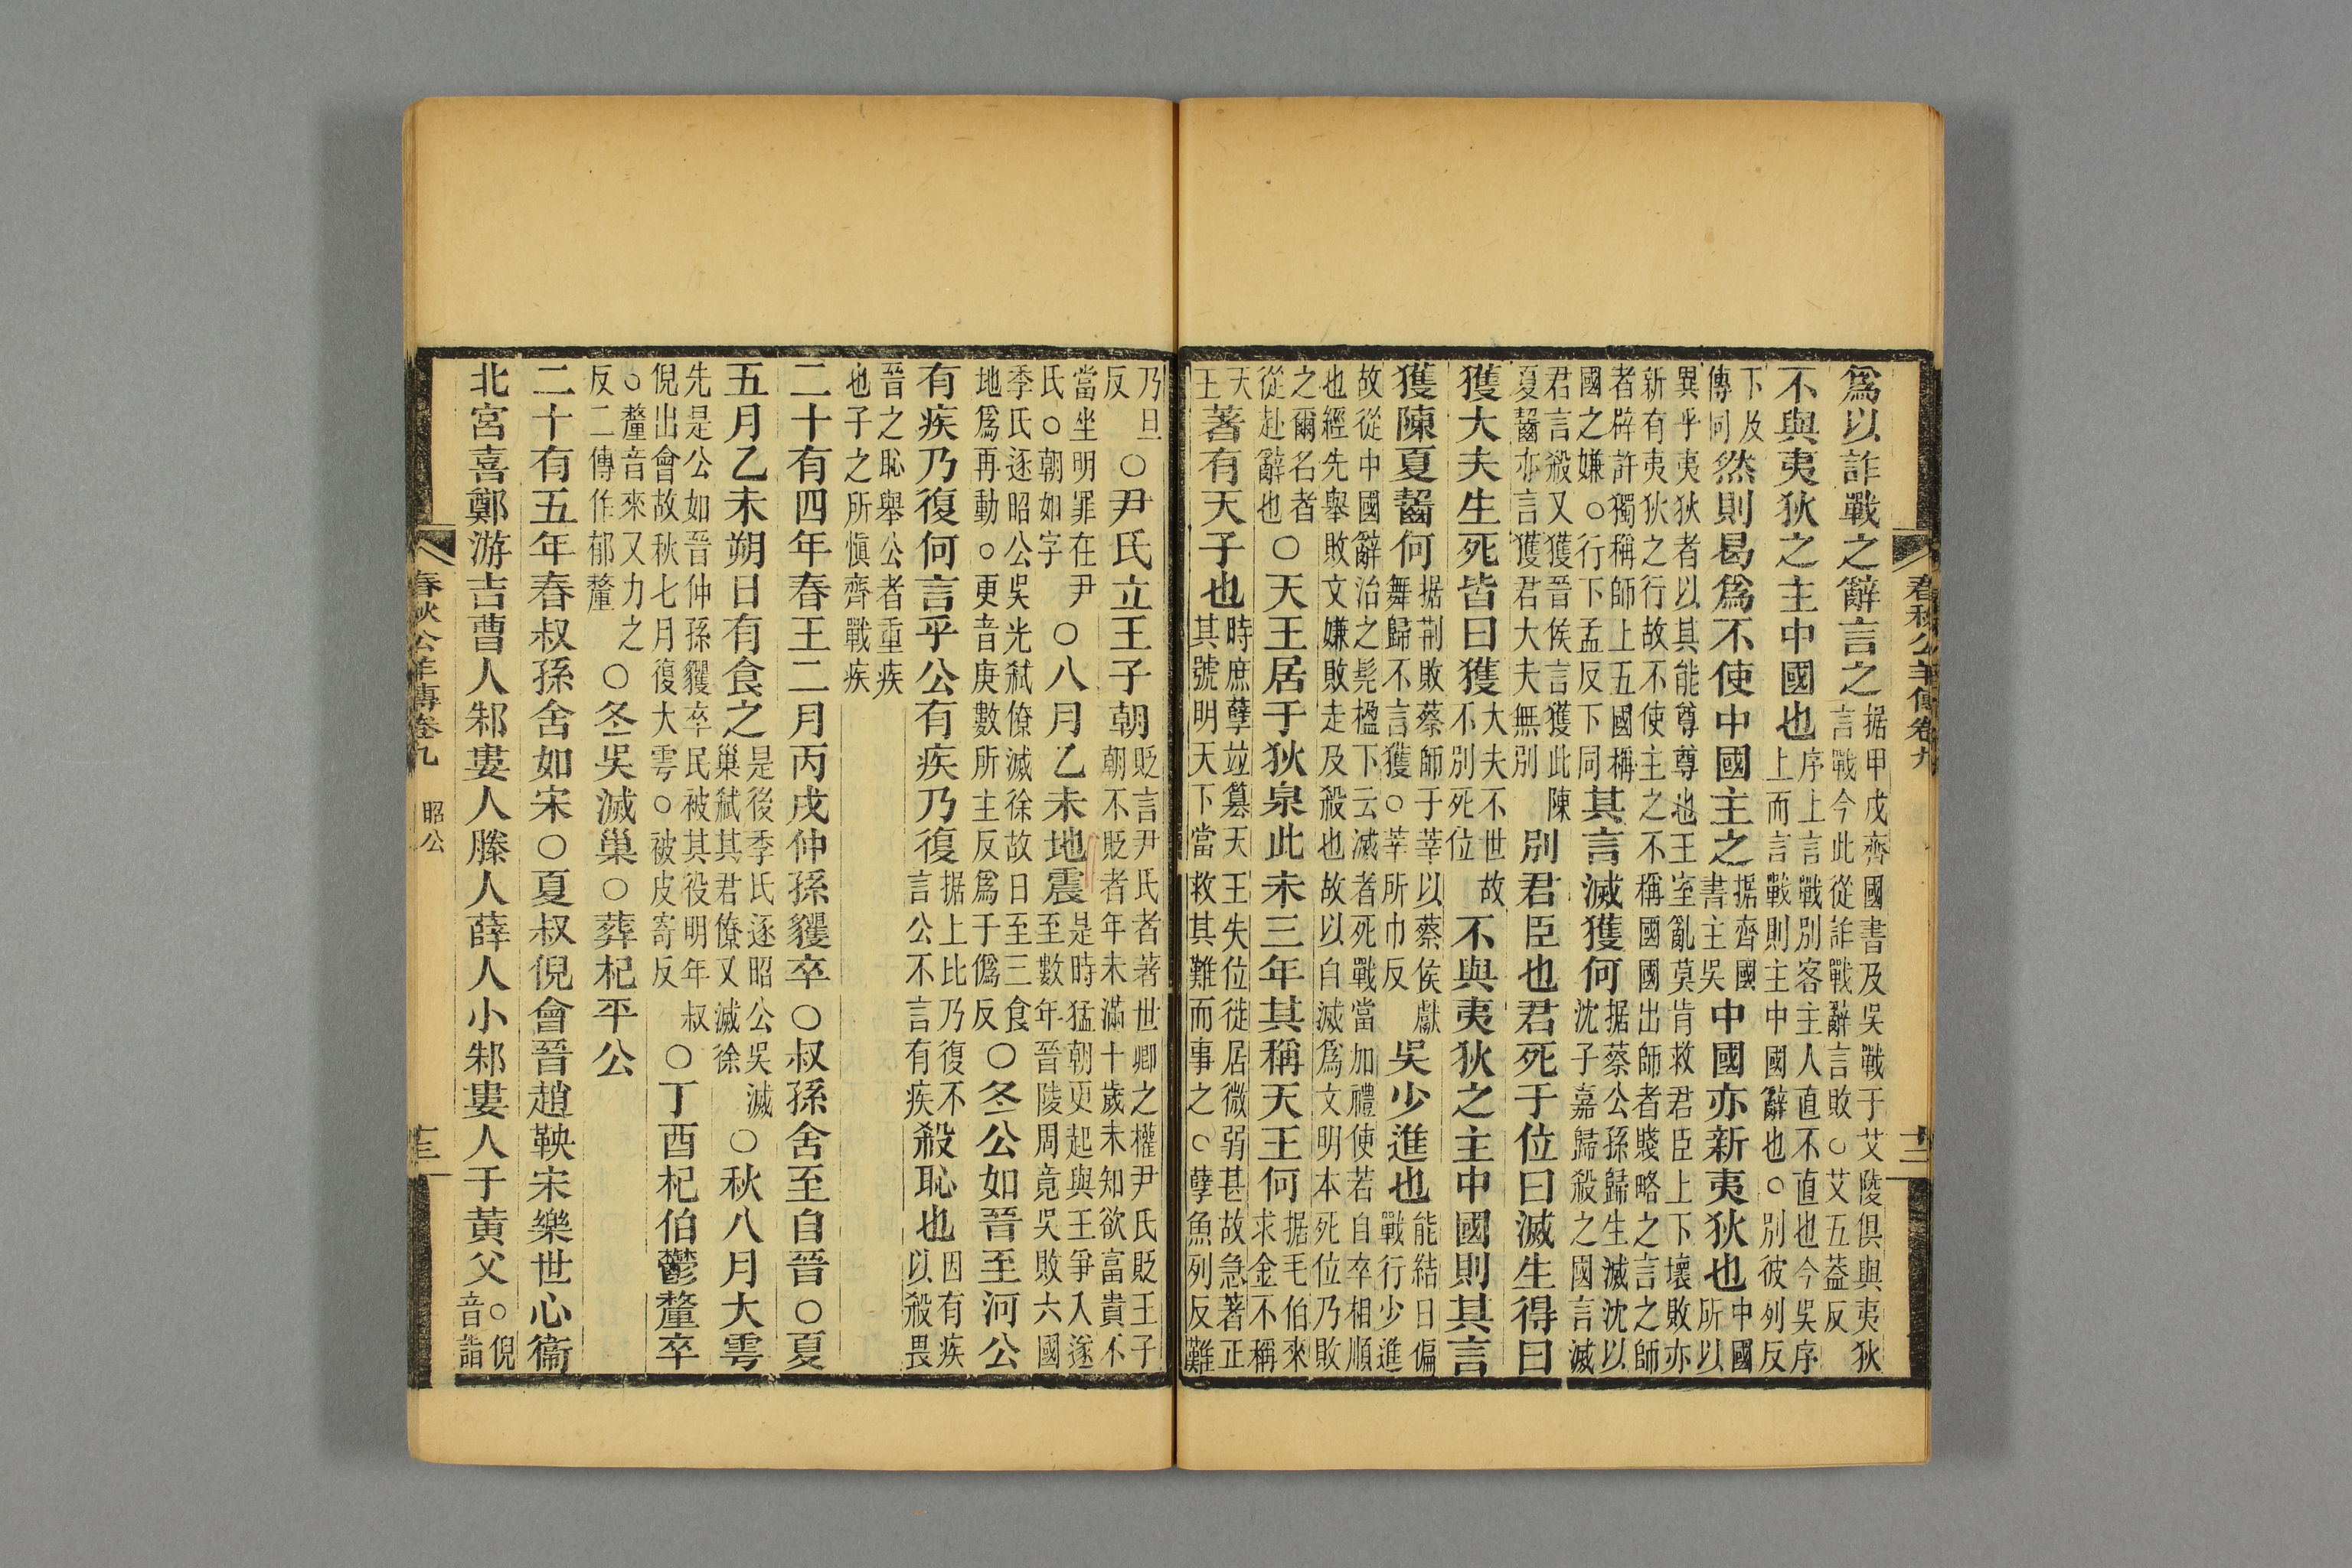 爲以詐戰之辭言之据甲戌齊國書及吳戰于艾陵俱與夷狄言戰今此從詐戰辭言敗○艾五蓋反
不與夷狄之主中國也序上言戰別客主人直不直也今吳序上而言戰則主中國辭也○別彼列反
下及傳同然則曷爲不使中國主之据齊國書主吳中國亦新夷狄也中國所以
異乎夷狄者以其能尊尊也王室亂莫肯救君臣上下壞敗亦新有夷狄之行故不使主之不稱國國出師者賤略之言之師
者辟許獨稱師上五國稱國之嫌○行下孟反下同其言滅獲何据蔡公孫歸生滅沈以沈子嘉歸殺之國言滅
君言殺又獲晉侯言獲此陳夏齧亦言獲君大夫無別別君臣也君死于位曰滅生得曰
獲大夫生死皆曰獲大夫不世故不別死位不與夷狄之主中國則其言
獲陳夏齧何据荆敗蔡師于莘以蔡侯獻舞歸不言獲○莘所巾反吳少進也能結日偏戰行少進
故從中國辭治之髡楹下云滅者死戰當加禮使若自卒相順也經先舉敗文嫌敗走及殺也故以自滅爲文明本死位乃敗
之爾名者從赴辭也○天王居于狄泉此未三年其稱天王何据毛伯來求金不稱
天王著有天子也時庶孽竝篡天王失位徙居微弱甚故急著正其號明天下當救其難而事之○孽魚列反難
春秋公羊傳卷九
乃旦反○尹氏立王子朝貶言尹氏者著世卿之權尹氏貶王子朝不貶者年未滿十歲未知欲富貴不
當坐明罪在尹氏○朝如字○八月乙未地震是時猛朝更起與王爭入遂至數年晉陵周竟吳敗六國
季氏逐昭公吳光弒僚滅徐故日至三食地爲再動○更音庚數所主反爲于僞反○冬公如晉至河公
有疾乃復何言乎公有疾乃復据上比乃復不言公不言有疾殺恥也因有疾以殺畏
晉之恥舉公者重疾也子之所愼齊戰疾
二十有四年春王二月丙戌仲孫貜卒○叔孫舍至自晉○夏
五月乙未朔日有食之是後季氏逐昭公吳滅巢弒其君僚又滅徐○秋八月大雩
先是公如晉仲孫貜卒民被其役明年叔倪出會故秋七月復大雩○被皮寄反○丁酉杞伯鬱釐卒
○釐音來又力之反二傳作郁釐○冬吳滅巢○葬杞平公
二十有五年春叔孫舍如宋○夏叔倪會晉趙鞅宋樂世心衞
北宮喜鄭游吉曹人邾婁人滕人薛人小邾婁人于黃父○倪音詣
春秋公羊傳卷九 昭公